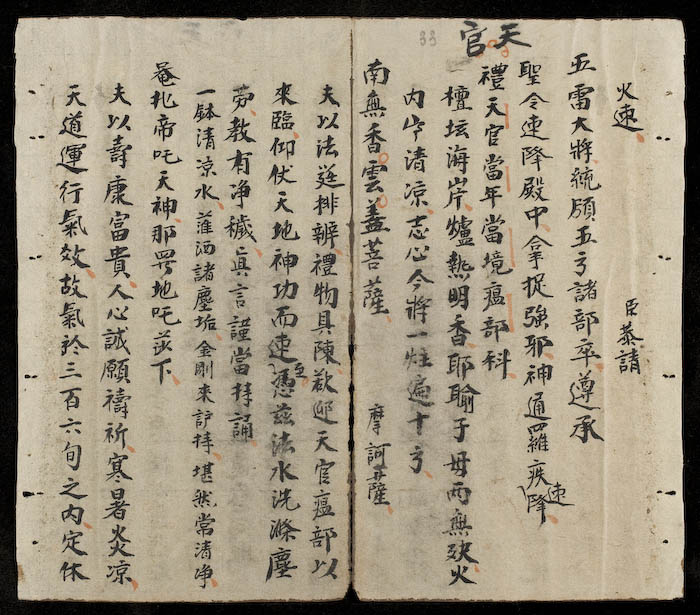 天官
33
火速 臣恭請
五雷大將統領五方諸部卒遵承
聖令速降殿中拿捉強邪神通羅疾速降
禮天官當年當境瘟部科
檀坛海岸爐熱明香耶輸子母兩無殃火
内生清凉志心今將一炷遍十方
南無香雲盖菩薩 摩訶薩
夫以法筵排辦禮物具陳欲迎天官瘟部以
來臨仰伏天地神功而速至憑茲法水洗滌塵
勞教有净穢真言謹當持誦
一鉢清凉水 洒諸塵垢金剛來護持堪然常清净
唵扎帝吒天神那 地吒 下
夫以壽康富貴人心誠願禱祈寒暑炎凉
天道運行氣效故氣於三百六旬之内定休